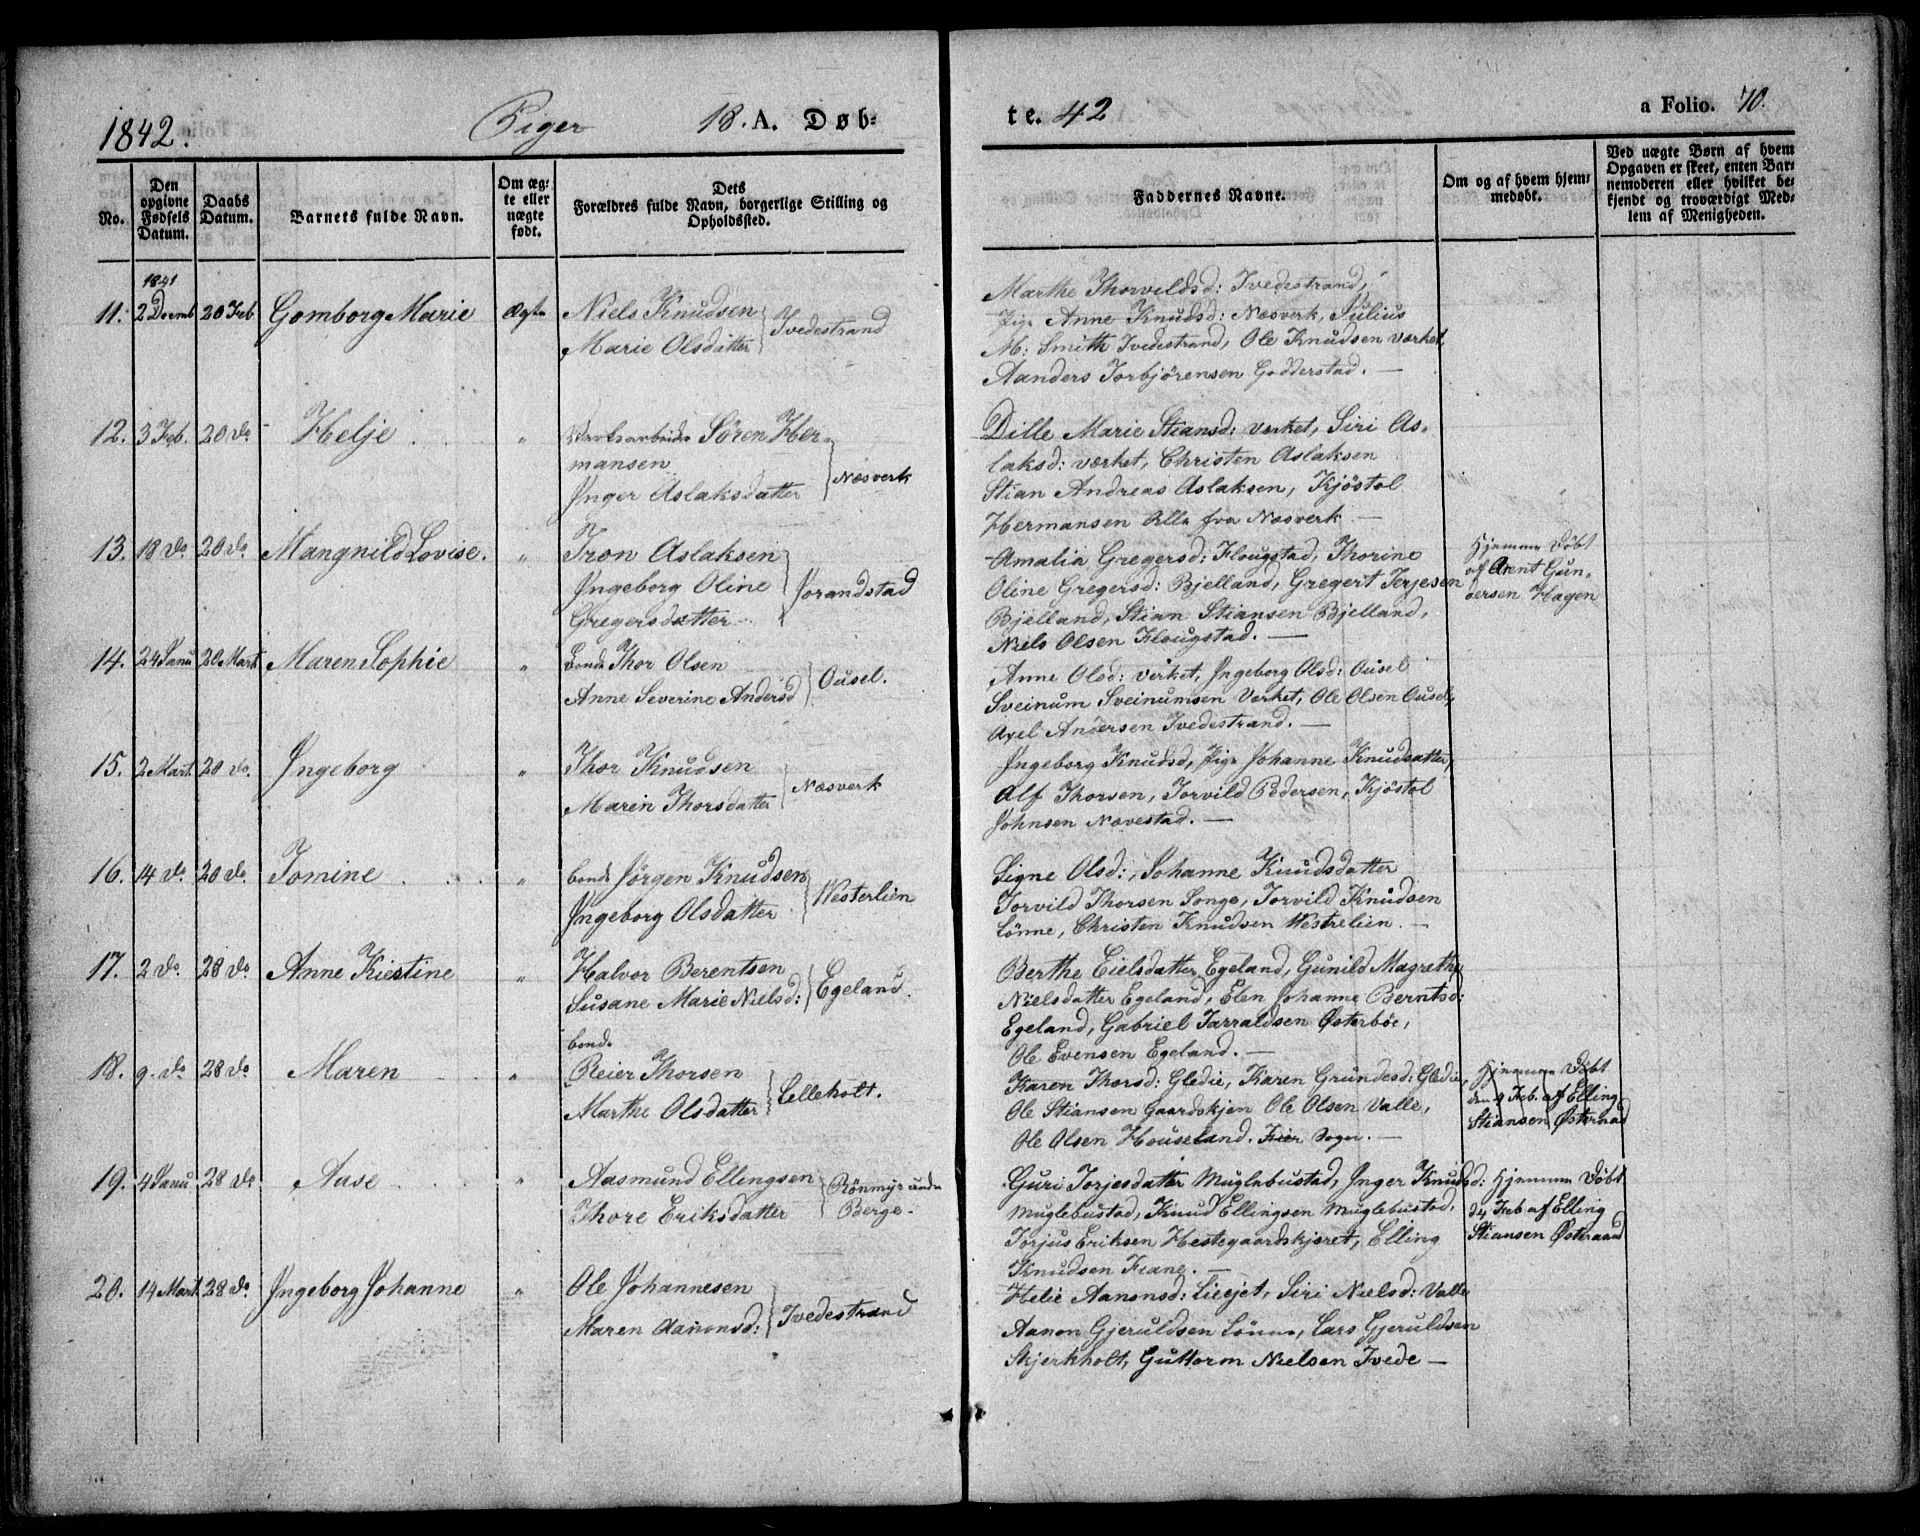 1842. Piger 18. A. Døb- te. 42 a Folio. 70.
No.
Den opgivne Fødsels Datum.
Daabs Datum.
Barnets fulde Navn.
Om æg- te eller uægte født.
Dets Forældres fulde Navn, borgerlige Stilling og Opholdssted.
Faddernes Navne.
Om og af hvem hjem- medøbt.
Ved uægte Børn af hvem Opgaven er skeet, enten Bar- nemoderen eller hvilket be- kjendt og troværdigt Med- lem af Menigheden.
1841
11. 2 Decmb 20 Feb Gomborg Marie Ægte
Niels Knudsen
Marie Olsdatter
Tvedestrand
Marthe Thorvildsd: Tvedestrand,
Pige Anne Knudsd: Næsverk, Julius
M: Smith Tvedestrand, Ole Knudsen værket
Aanders Torbjørensen Godderstad. —
12. 3 Feb. 20 do Helje "
Værksarbeider Søren Her-
mansen
Inger Aslaksdatter
Næsverk
Dille Marie Stiansd: værket, Siri As-
laksd: værket, Christen Aslaksen
Stian Andreas Aslaksen, Kjöstol
Hermansen Alle fra Næsverk —
13. 18 do 20 do Mangnild Lovise. "
Tron Aslaksen
Ingeborg Oline
Gregersdatter
Jorandstad
Amalia Gregersd: Klougstad, Thorine
Oline Gregersd: Bjelland, Gregert Terjesen
Bjelland, Stian Stiansen Bjelland,
Niels Olsen Klougstad. —
Hjemme Döbt
af Arent Gun-
dersen Hagen
14. 24 Janu 20 Mart Maren Sophie "
bonde Thor Olsen
Anne Severine Andersd
Ousel.
Anne Olsd: verket, Ingeborg Olsd: Ousel
Sveinum Sveinumsen Verket, Ole Olsen Ousel,
Axel Andersen Tvedestrand. —
15. 2 Mart. 20 do. Ingeborg "
Thor Knudsen
Maren Thorsdatter
Næsverk
Ingeborg Knudsd, Pige Johanne Knudsdatter,
Alf Thorsen, Torvild Pedersen, Kjöstol
Johnsen Nævestad. —
16. 14 do 20 do. Tomine "
bonde Jørgen Knudsen
Ingeborg Olsdatter
Westerlien
Signe Olsd:, Johanne Knudsdatter
Torvild Thorsen Songe, Torvild Knudsen
Lønne, Christen Knudsen Westrelien. —
17. 2 do. 28 do Anne Kiestine "
Halvor Berentsen
Susane Marie Nielsd:
Egeland.
Berthe Eielsdatter Egeland, Gunild Magrethe
Nielsdatter Egeland, Elen Johanne Berntsd:
Egeland, Gabriel Tarraldsen Østerböe,
Ole Evensen Egeland. —
18. 9 do 28 do Maren "
bonde
Reier Thorsen
Marthe Olsdatter
Lelleholt.
Karen Thorsd: Gledie, Karen Grundesd: Gledie,
Ole Stiansen Gaardskjen Ole Olsen Valle,
Ole Olsen Houseland. Kier Sogn. —
Hjemme Döbt
den 4 Feb. af Elling
Stiansen Østeraad
19. 4 Janu 28 do Aase "
Aasmund Ellingsen
Thore Eriksdatter
Rönmyr unde
Berge.
Guri Torjesdatter Muglebustad, Inger Knudsd:
Muglebustad, Knud Ellingsen Muglebustad,
Torjus Eriksen Hestegaardskjøret, Elling
Knudsen Fiane. —
Hjemme Döbt
d 4 Feb af Elling
Stiansen Østeraad
20. 14 Mart 28 do Ingeborg Johanne "
Ole Johannesen
Maren Aanonsd:
Tvedestrand
Helie Aanonsd: Lieejet, Siri Nielsd: Valle
Aanon Gjeruldsen Lönne, Lars Gjeruldsen
Skjerkholt, Guttorm Nielsen Tvede —